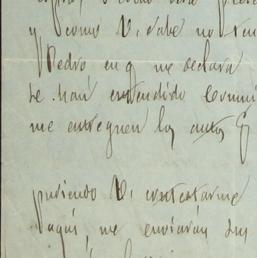 y como V. sabe no ten
Pedro en q me declara
se han entendido
me entreguen los autos q
pudiendo V. contestarme
aquí me enviarán sus